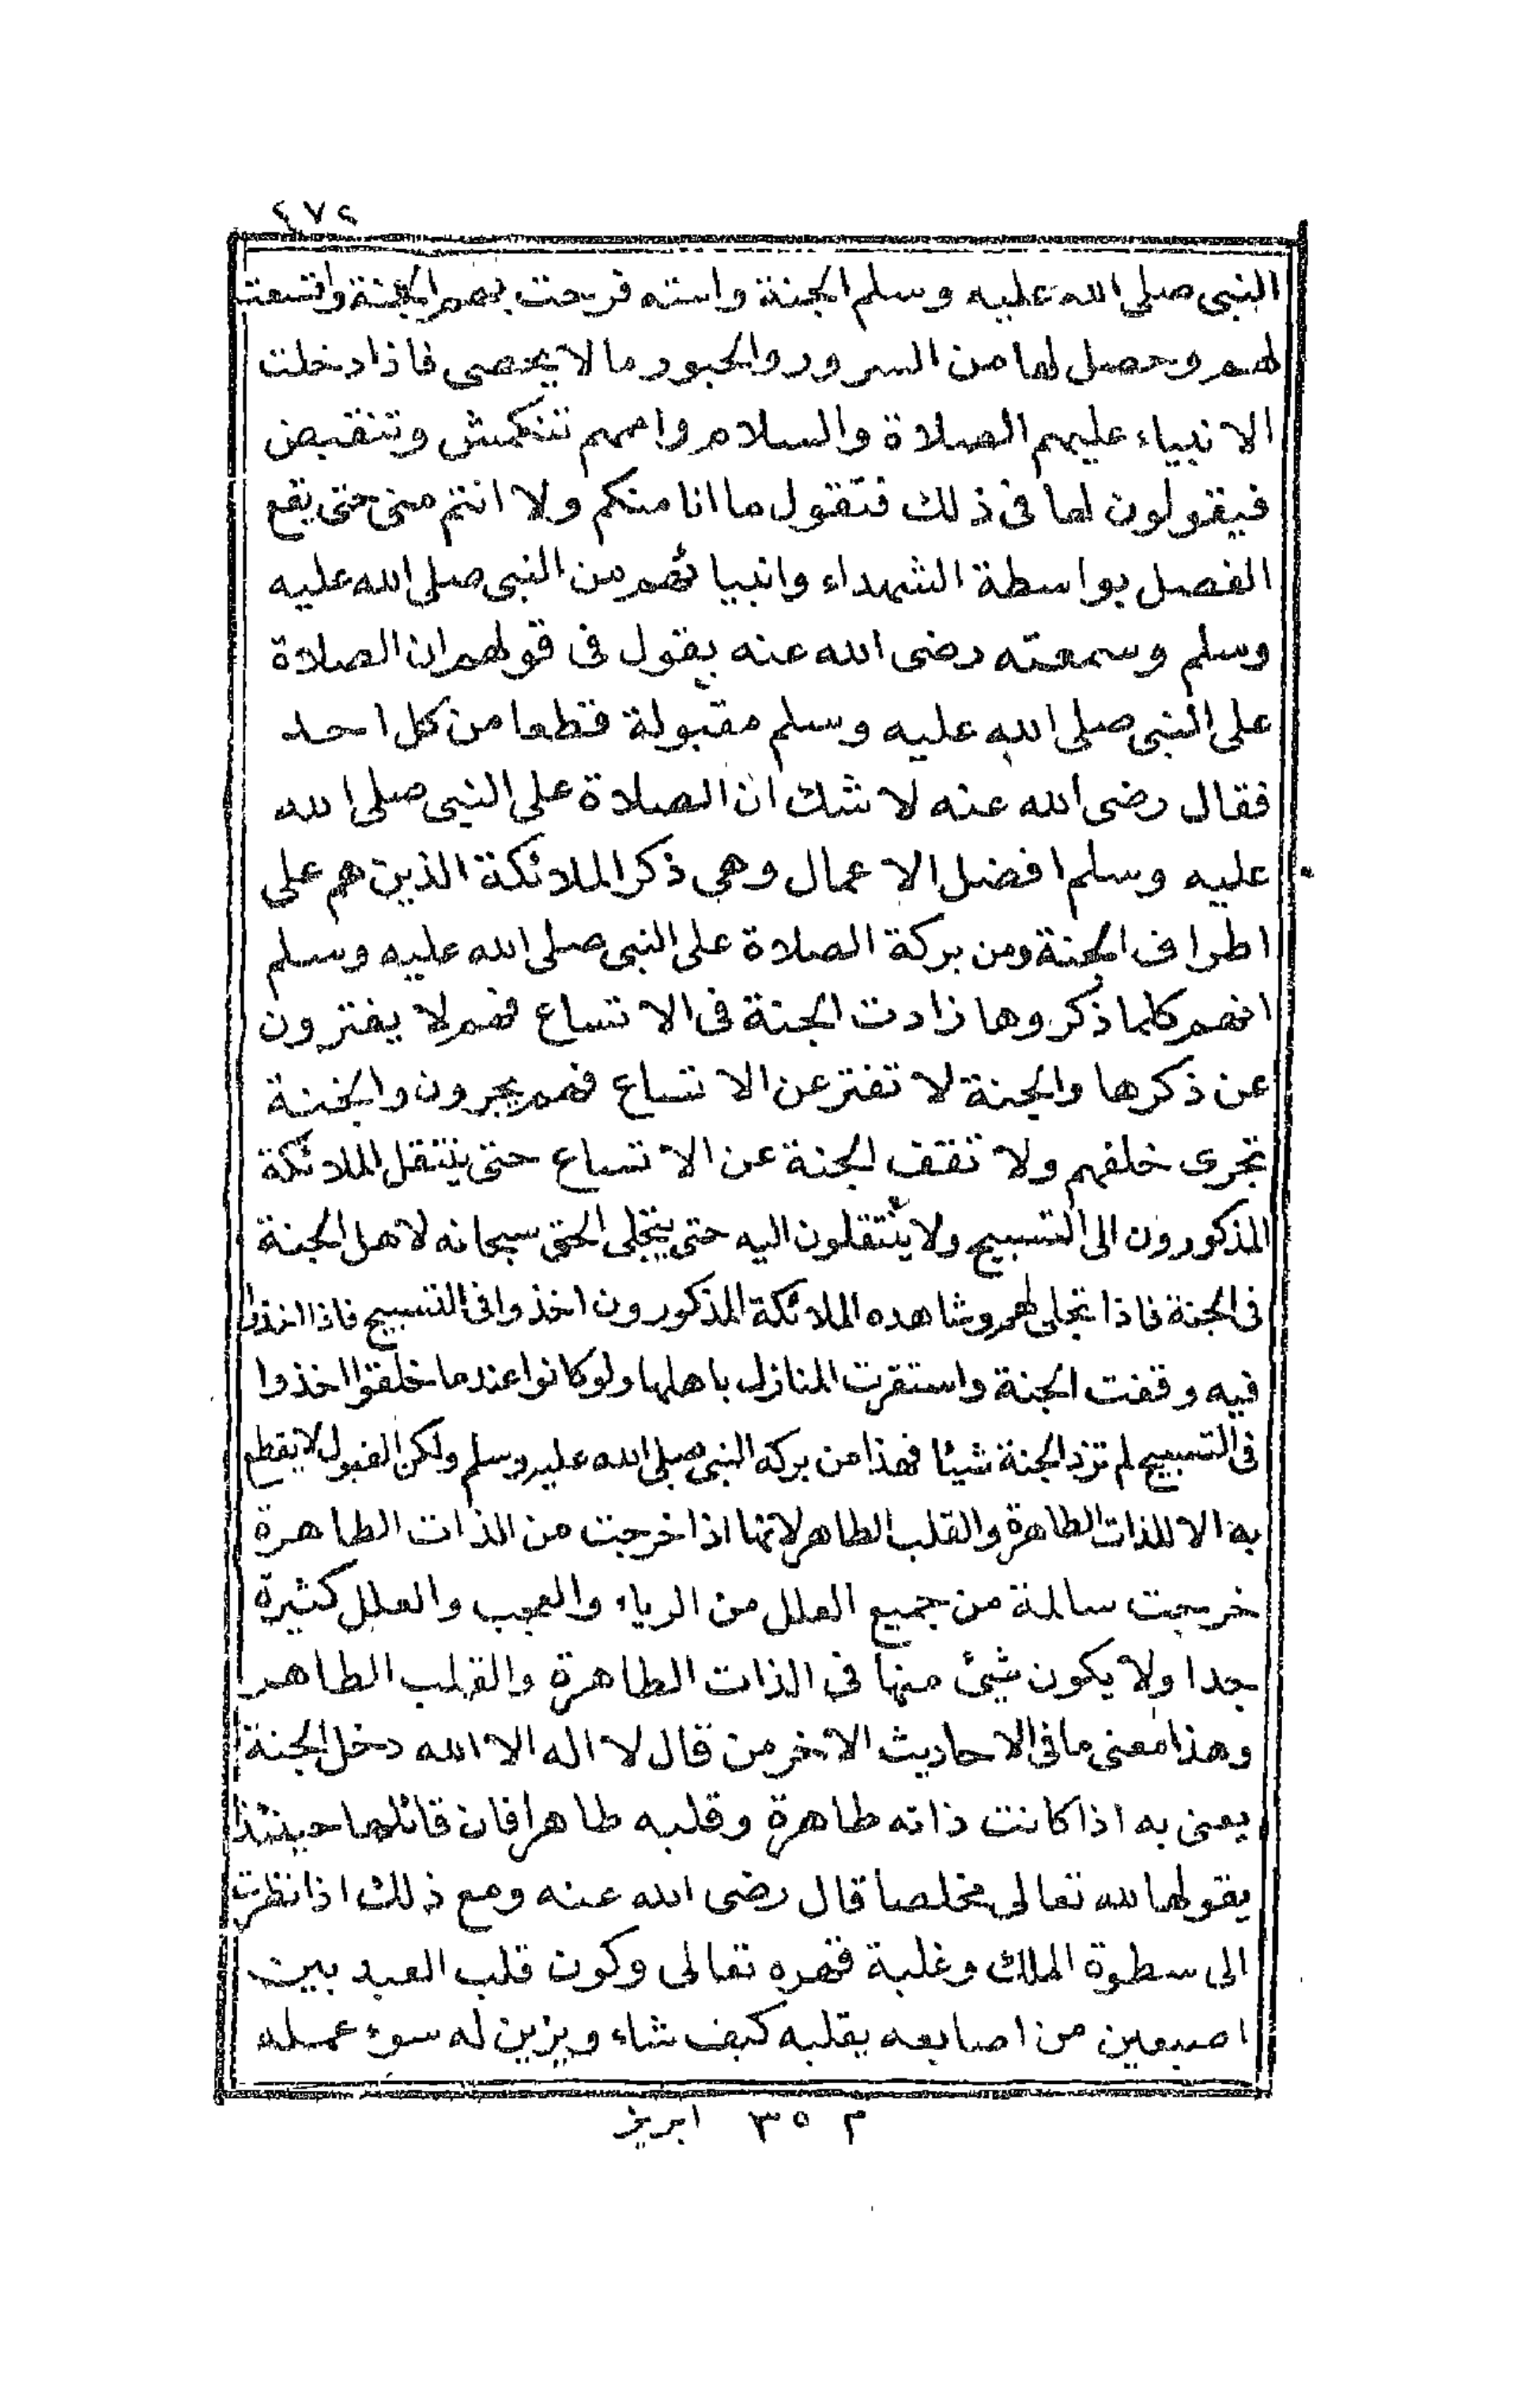 ٤٧٤
النبى صلى الله عليه وسلم الجنة وامته فرحت بهم الجنة واتسعت
لهم وحصل لها من السرور والحبور ما لا يحصى فاذا دخلت
الانبياء عليهم الصلاة والسلام واممهم تنكمش وتنقبض
فيقولون لها فى ذلك فتقول ما انا منكم ولا انتم منى حتى يقع
الفصل بواسطة الشهداء وانبيائهم من النبى صلى الله عليه
وسلم وسمعته رضى الله عنه يقول فى قولهم ان الصلاة
على النبى صلى الله عليه وسلم مقبولة قطعا من كل احد
فقال رضى الله عنه لا شك ان الصلاة على النبى صلى الله
عليه وسلم افضل الاعمال وهى ذكر الملائكة الذين هم على
اطراف الجنة ومن بركة الصلاة على النبى صلى الله عليه وسلم
انهم كلما ذكروها زادت الجنة فى الاتساع فهم لا يفترون
عن ذكرها والجنة لا تفتر عن الاتساع فهم يجرون والجنة
تجرى خلفهم ولا تقف الجنة عن الاتساع حتى ينتقل الملائكة
المذكورون الى التسبيح ولا ينتقلون اليه حتى يتجلى الحق سبحانه لاهل الجنة
فى الجنة فاذا تجلى لهم وشاهده الملائكة المذكورون اخذوا فى التسبيح فاذا اخذوا
فيه وقفت الجنة واستقرت المنازل باهلها ولو كانوا عندما خلقوا اخذوا
فى التسبيح لم تزد الجنة شيئا فهذا من بركة النبى صلى الله عليه وسلم ولكن القبول لا يقطع
به الا للذات الطاهرة والقلب الطاهر لانها اذا خرجت من الذات الطاهرة
خرجت سالمة من جميع العلل من الرياء والعجب والعلل كثيرة
جدا ولا يكون شيئ منها فى الذات الطاهرة والقلب الطاهر
وهذا معنى ما فى الاحاديث الاخر من قال لا اله الا الله دخل الجنة
يعنى به اذا كانت ذاته طاهرة وقلبه طاهرا فان قائلها حينئذ
يقولها لله تعالى مخلصا قال رضى الله عنه ومع ذلك اذا نظرت
الى سطوة الملك وغلبة قهره تعالى وكون قلب العبد بين
اصبعين من اصابعه يقلبه كيف شاء ويزين له سوء عمله
م ٣٥ ابريز